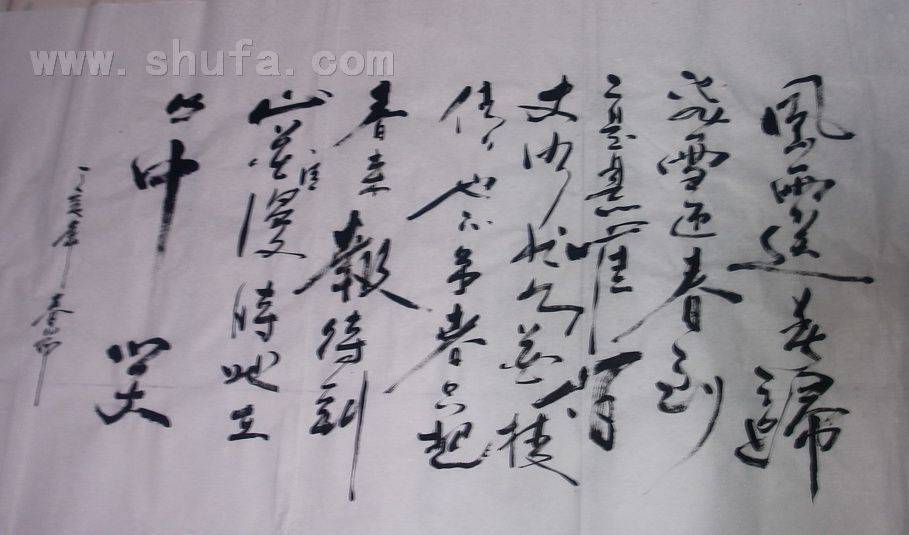 www.shufa.com
風雨送春歸
飛雪迎春到
已是懸崖百
丈冰犹有花枝
俏俏也不争春只把
春来報待到
山花爛漫時她在
丛中笑